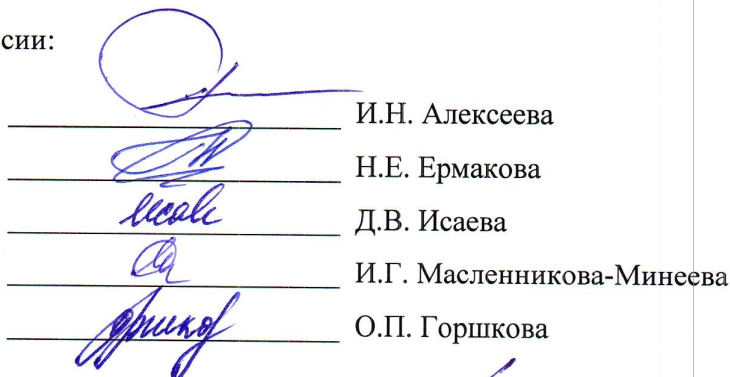 сии:
И.Н. Алексеева
Н.Е. Ермакова
Д.В. Исаева
И.Г. Масленникова-Минеева
О.П. Горшкова